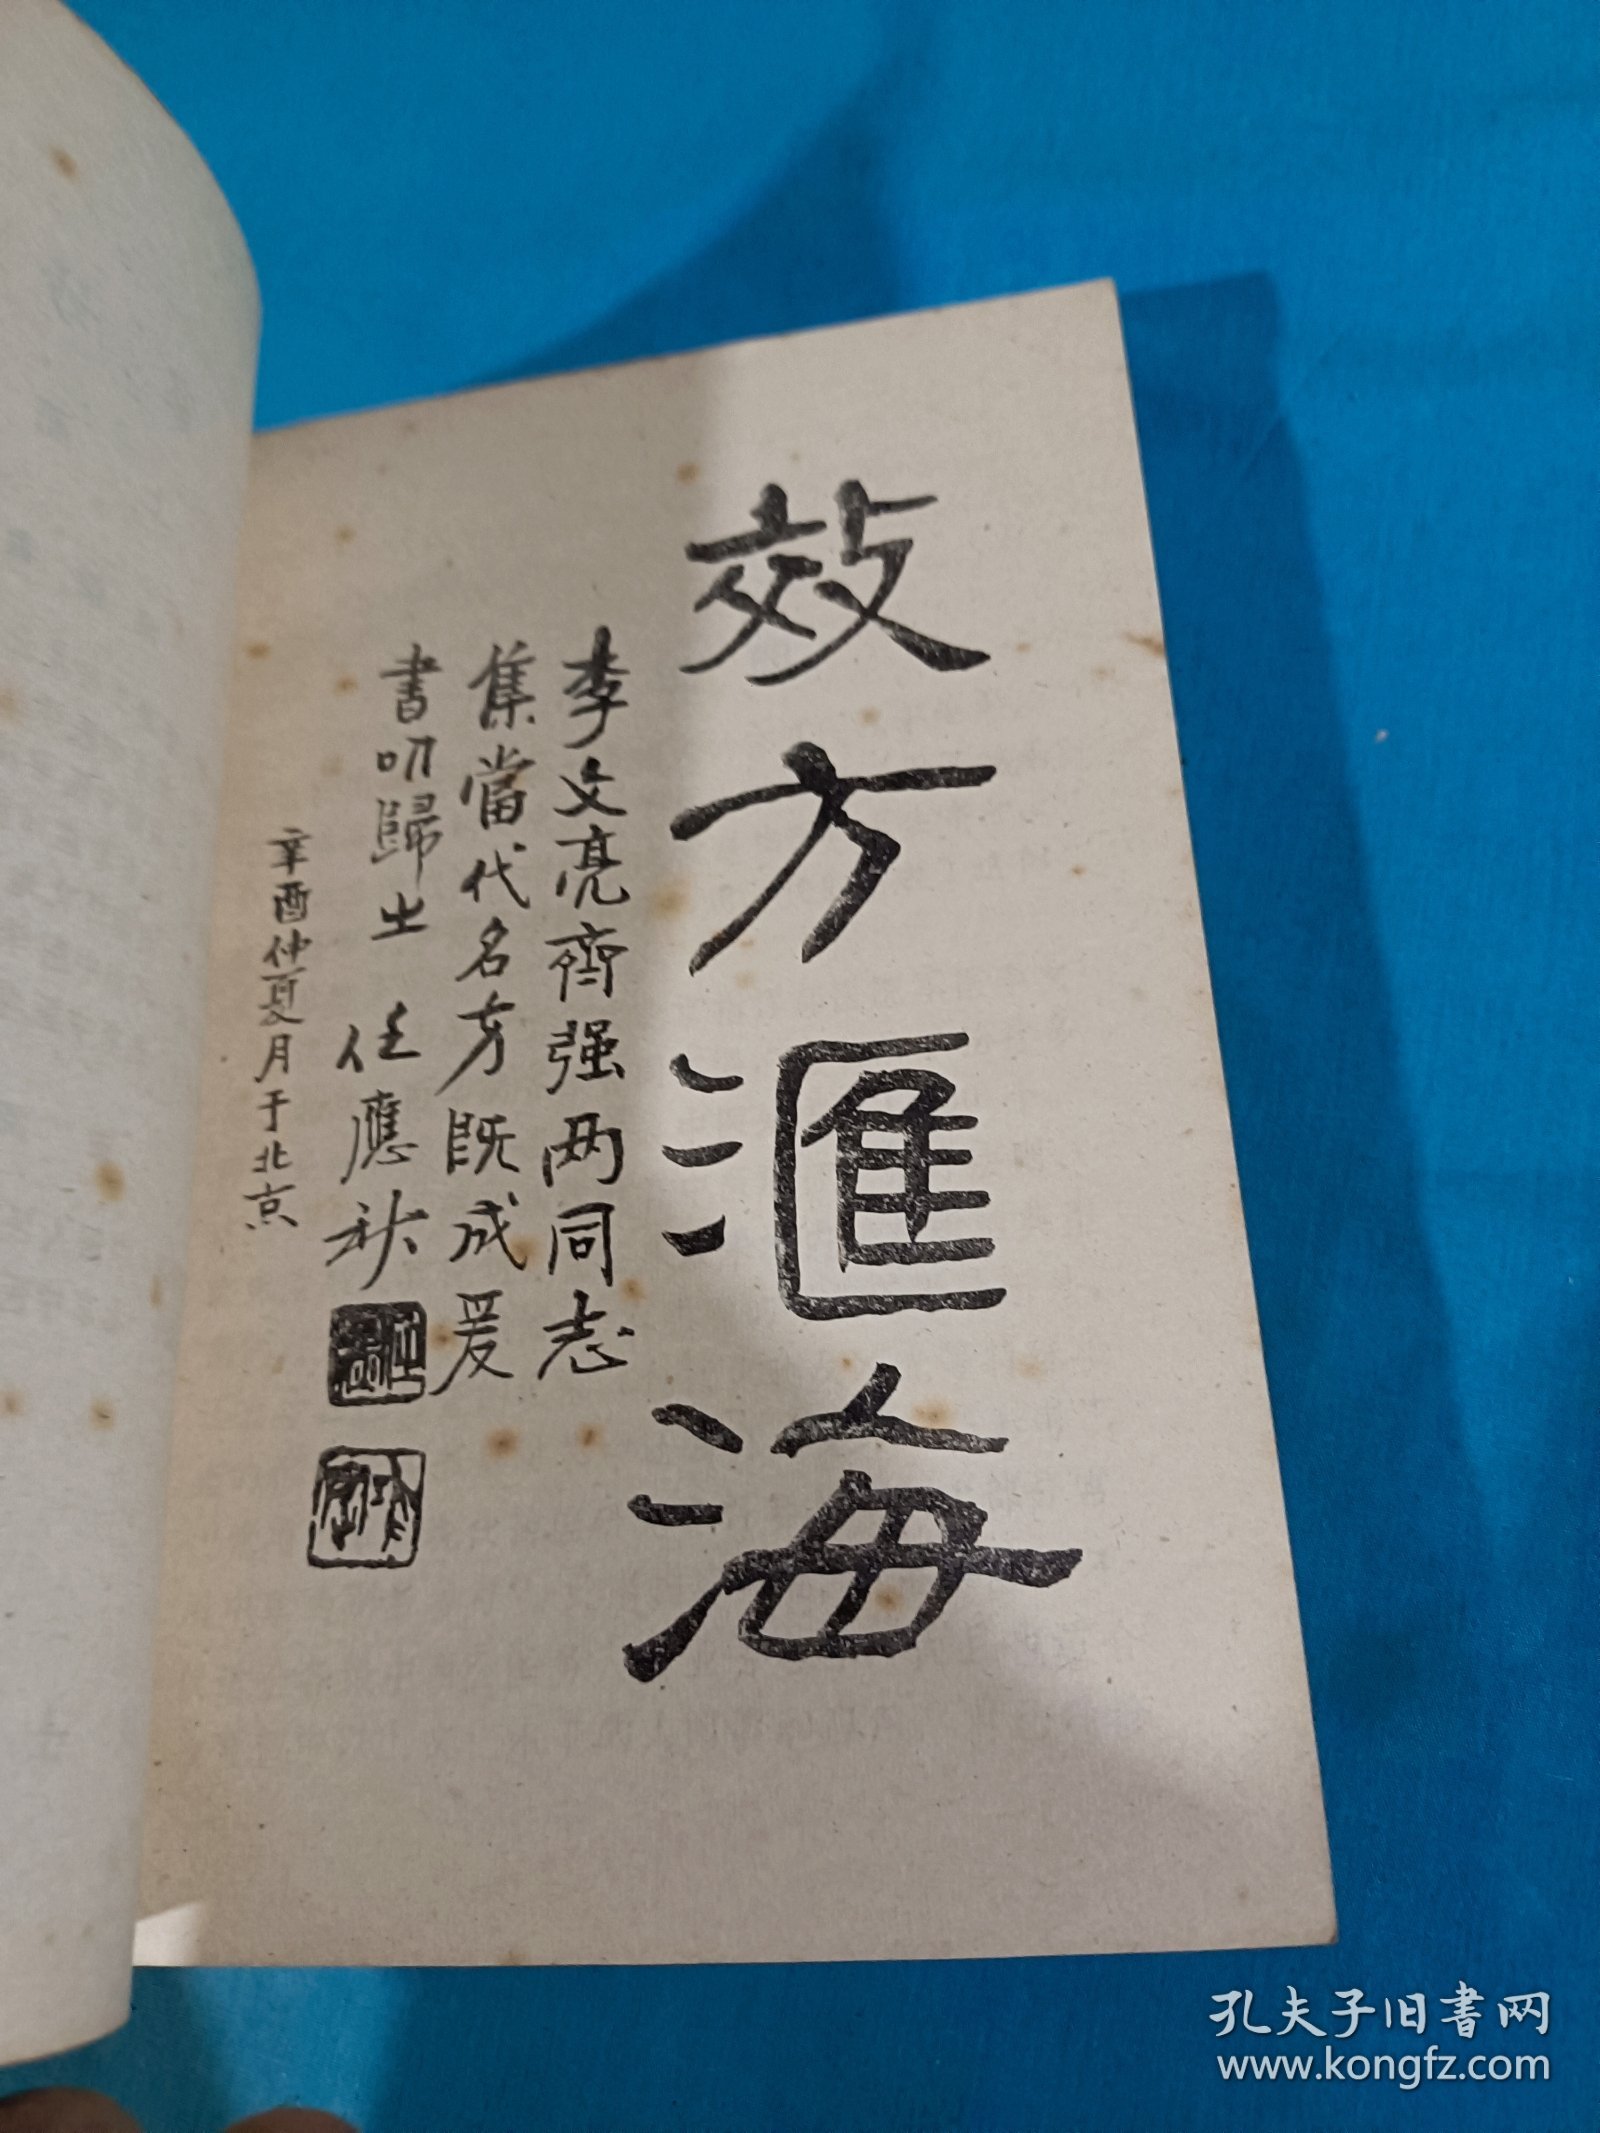 效方滙海
李文亮齊强两同志
集當代名方既成爰
書叨歸之 任應秋
辛酉仲夏月于北京
孔夫子旧書网
www.kongfz.com